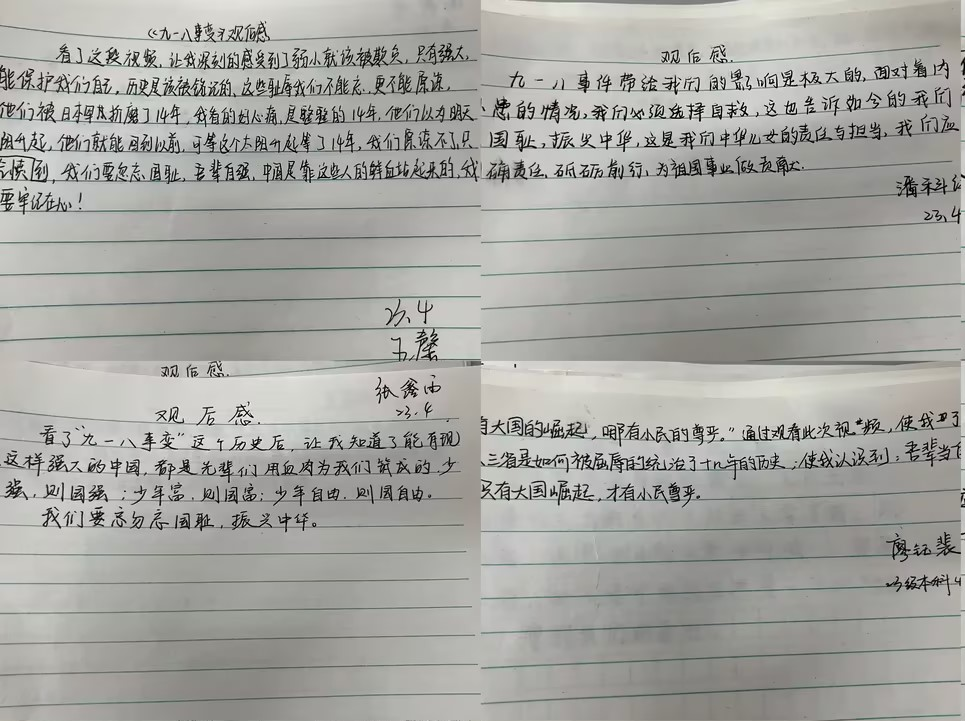 《九一八事变》观后感
看了这段视频，让我深刻的感受到了弱小就该被欺负，只有强大，
能保护我们自己，历史是该被铭记的，这些耻辱我们不能忘，更不能原谅，
他们被日本军队折磨了14年，我看的好心痛，是整整的14年，他们以为明天
阳升起，他们就能回到以前，可等这个太阳升起等了14年，我们原谅不了，只
我们要忘国耻，吾辈自强，中国是靠这些人的鲜血站起来的，我
要牢记在心！
23.4
王馨
观后感
九一八事件带给我们的影响是极大的，面对着内
患的情况，我们必须选择自救，这也告诉如今的我们
国耻，振兴中华，这是我们中华儿女的责任与担当，我们应
确责任，砥砺前行，为祖国事业做贡献
潘
23.4
观后感.
张鑫雨
23.4.
观后感.
看了“九一八事变”这个历史后，让我知道了能有现
这样强大的中国，都是先辈们用血肉为我们筑成的，少
强，则国强；少年富，则国富；少年自由，则国自由。
我们要忘勿忘国耻，振兴中华。
有大国的崛起，哪有小民的尊严。”通过观看此次视频，使我
三省是如何被屈辱的统治了十九年的历史；使我认识到：吾辈当自
只有大国崛起，才有小民尊严。
廖钰裴
23级本科4